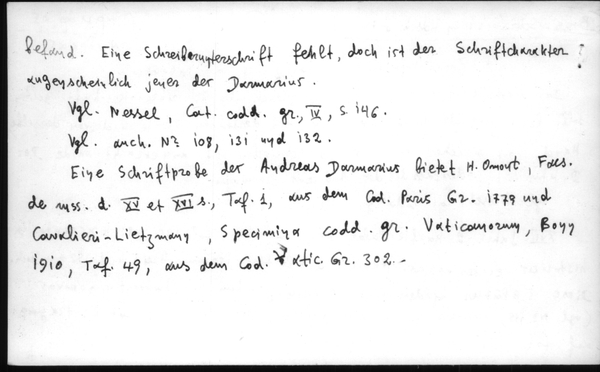 befand. Eine Schreiberunterschrift fehlt, doch ist der Schriftcharakter
augenscheinlich jener der Darmarius.
Vgl. Nessel, Cat. codd. gr., IV, S. 146.
Vgl. auch. Nr. 108, 131 und 132.
Eine Schriftprobe der Andreas Darmarius bietet H. Omont, Facs.
de mss. d. XV et XVI s., Taf. 1, aus dem Cod. Paris Gr. 1779 und
Cavalieri-Lietzmann, Specimina codd. gr. Vaticanorum, Bonn
1910, Taf. 49, aus dem Cod. Vatic. Gr. 302.-